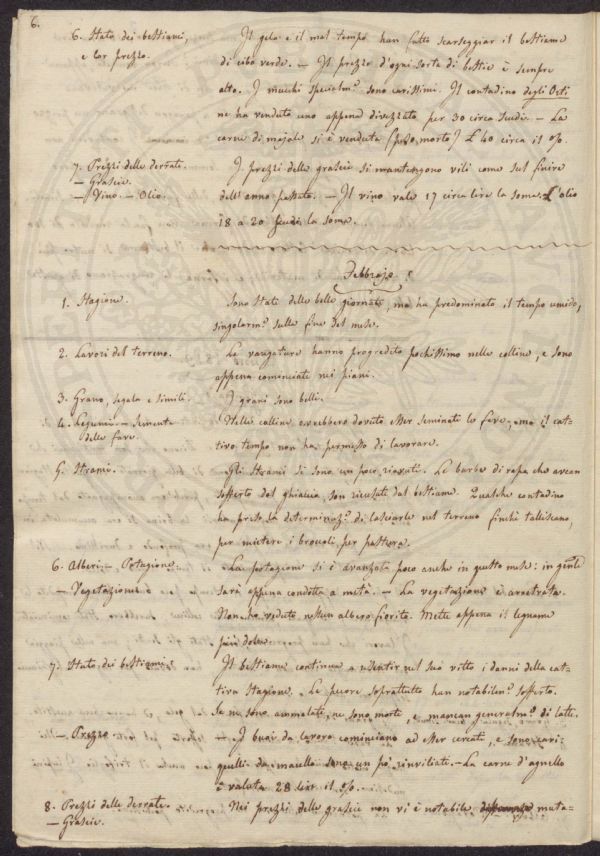 6.
6. Stato dei bestiami,
e lor prezzo.
Il gelo e il mal tempo han fatto scarseggiar il bestiame
di cibo verde. — Il prezzo d'ogni sorta di bestie è sempre
alto. I mucchi specialm.e sono carissimi. Il contadino degli Orti
ne ha venduto uno appena divezzato per 30 circa scudi. — La
carne di majale si è venduta (peso morto) £ 40 circa il %.
7. Prezzi delle derrate.
— Grascie.
— Vino. — Olio.
I prezzi delle grascie si mantengono vili come sul finire
dell'anno passato. — Il vino vale 17 circa lire la soma. L'olio
18 a 20 scudi la soma.
Febbrajo.
1. Stagione.
Sono state delle belle giornate, ma ha predominato il tempo umido,
singolarm.e sulla fine del mese.
2. Lavori del terreno.
Le vangature hanno progredito pochissimo nelle colline, e sono
appena cominciate nei piani.
3. Grano, segala e simili.
I grani sono belli.
4. Legumi. — Sementa
delle fave.
Nelle colline avrebbero dovuto esser seminate le fave, ma il cat-
tivo tempo non ha permesso di lavorare.
5. Strami.
Gli strami si sono un poco riavuti. Le barbe di rapa che avean
sofferto dal ghiaccio, son ricusate dal bestiame. Qualche contadino
ha preso la determinaz.e di lasciarle nel terreno finchè talliscano,
per mietere i broccoli per pastura.
6. Alberi. — Potagione.
— Vegetazione.
La potagione si è avanzata poco anche in questo mese: in gen.le
sarà appena condotta a metà. — La vegetazione è arretrata.
Non ho veduto nessun albero fiorito. Mette appena il legname
più dolce.
7. Stato dei bestiami.
Il bestiame continua a risentir nel suo vitto i danni della cat-
tiva stagione. Le pecore soprattutto han notabilm.e sofferto.
Se ne sono ammalate, ne sono morte, e mancan generalm.e di latte.
— Prezzo
— I buoi da lavoro cominciano ad esser cercati, e sono cari:
quelli da macello sono un po' rinviliati. — La carne d'agnello
è valuta 28 lire il %.
8. Prezzi delle derrate.
— Grascie.
Nei prezzi delle grascie non vi è notabile muta-